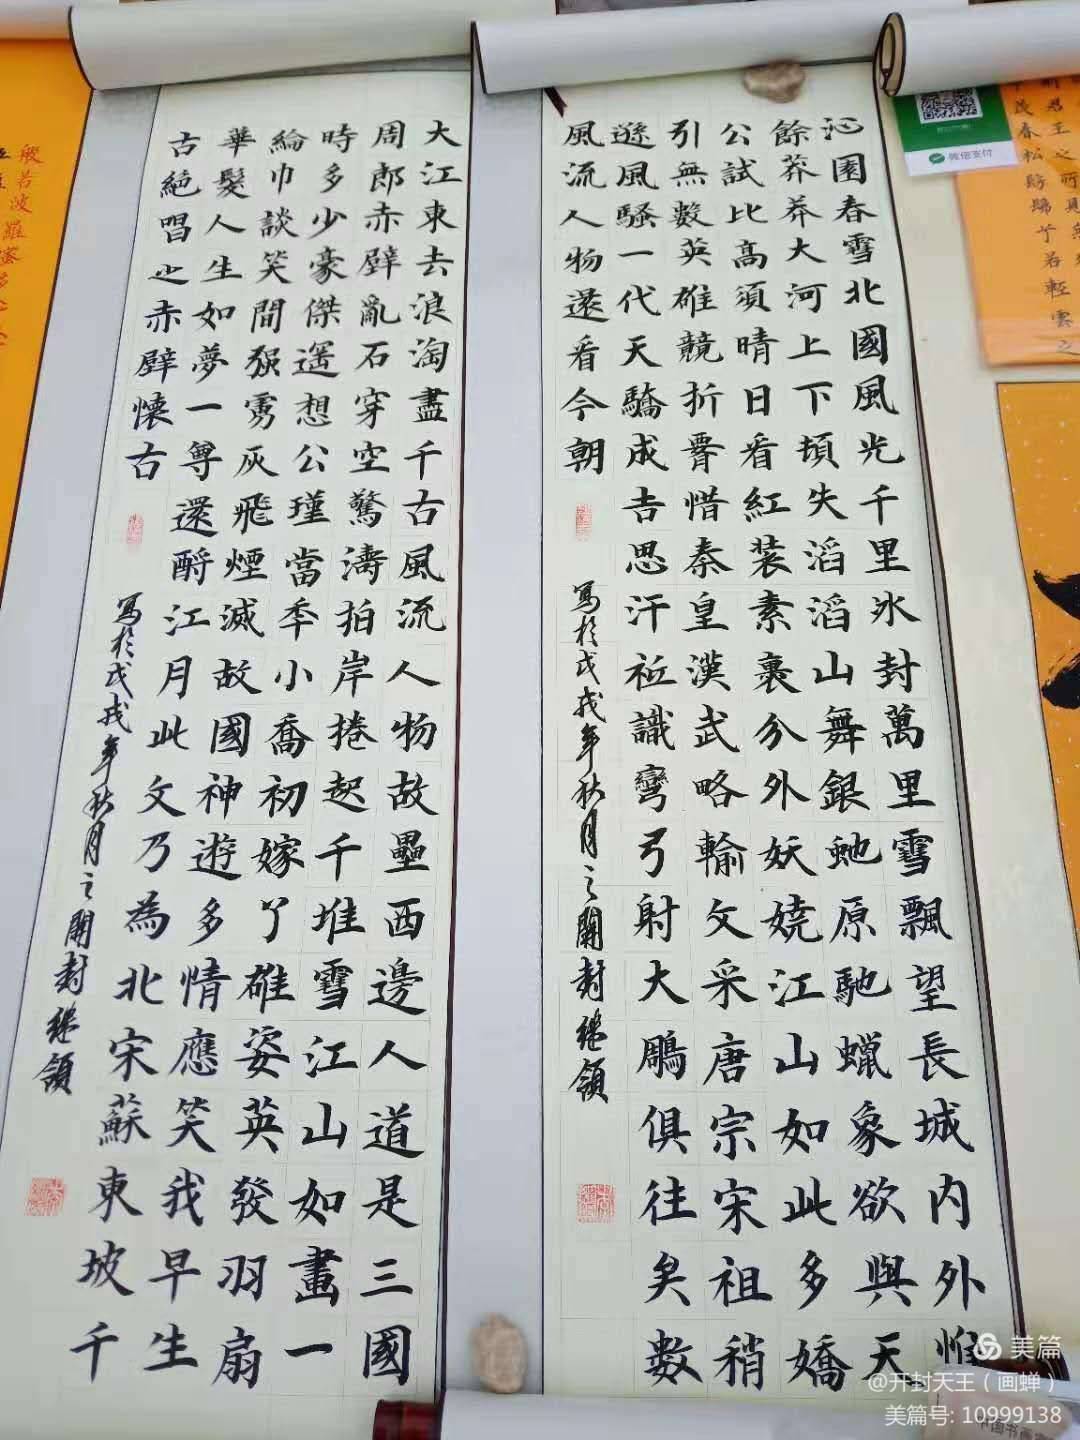 沁園春雪北國風光千里冰封萬里雪飄望長城內外惟
餘莽莽大河上下頓失滔滔山舞銀虵原馳蠟象欲與天
公試比高須晴日看紅裝素裹分外妖嬈江山如此多嬌
引無數英雄競折惜秦皇漢武略輸文采唐宗宋祖稍
遜風騷一代天驕成吉思汗祇識彎弓射大鵰俱往矣數
風流人物還看今朝
寫於戊戌年秋月之開封继領
大江東去浪淘盡千古風流人物故壘西邊人道是三國
周郎赤壁亂石穿空驚濤拍岸捲起千堆雪江山如畫一
時多少豪傑遥想公瑾當年小喬初嫁了雄姿英發羽扇
綸巾談笑間強虜灰飛煙滅故國神遊多情應笑我早生
華髮人生如夢一尊還酹江月此文乃為北宋蘇東坡千
古絕唱之赤壁懷古
寫於戊戌年秋月之開封继領
微信支付
君王之所見
茂春松髣髴兮若輕雲之
般若波羅蜜多
美篇
@开封天王（画蝉）
美篇号: 10999138